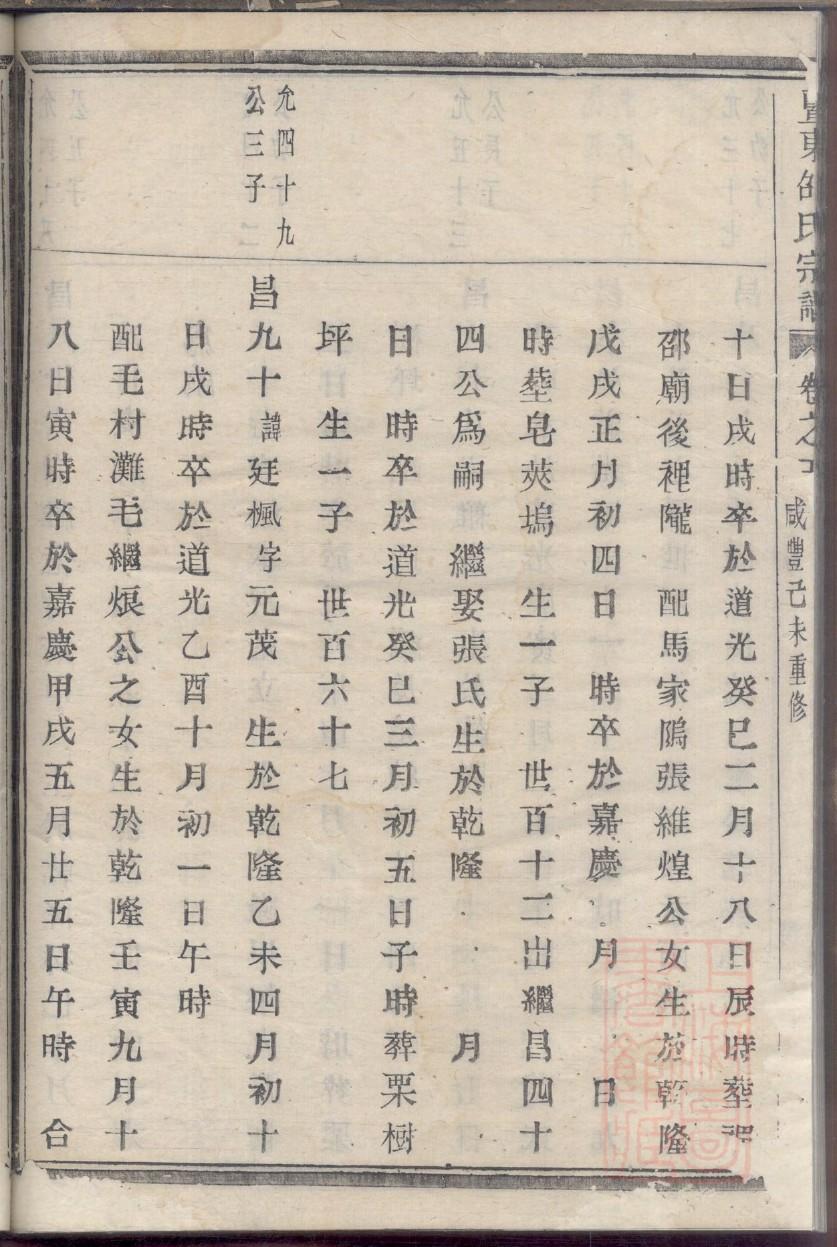 暨東邵氏宗譜 卷之 咸豐己未重修
十日戌時卒於道光癸巳二月十八日辰時塟
邵廟後裡隴 配馬家隝張維煌公女生於乾隆
戊戌正月初四日 時卒於嘉慶 月 日
時塟皂莢塢 生一子 世百十二出繼昌四十
四公爲嗣 繼娶張氏生於乾隆 月
日 時卒於道光癸巳三月初五日子時葬栗樹
坪 生一子 世百六十七
允四十九
公三子
昌九十諱廷楓字元茂 生於乾隆乙未四月初十
日戌時卒於道光乙酉十月初一日午時
配毛村灘毛繼烺公之女生於乾隆壬寅九月十
八日寅時卒於嘉慶甲戌五月廿五日午時 合